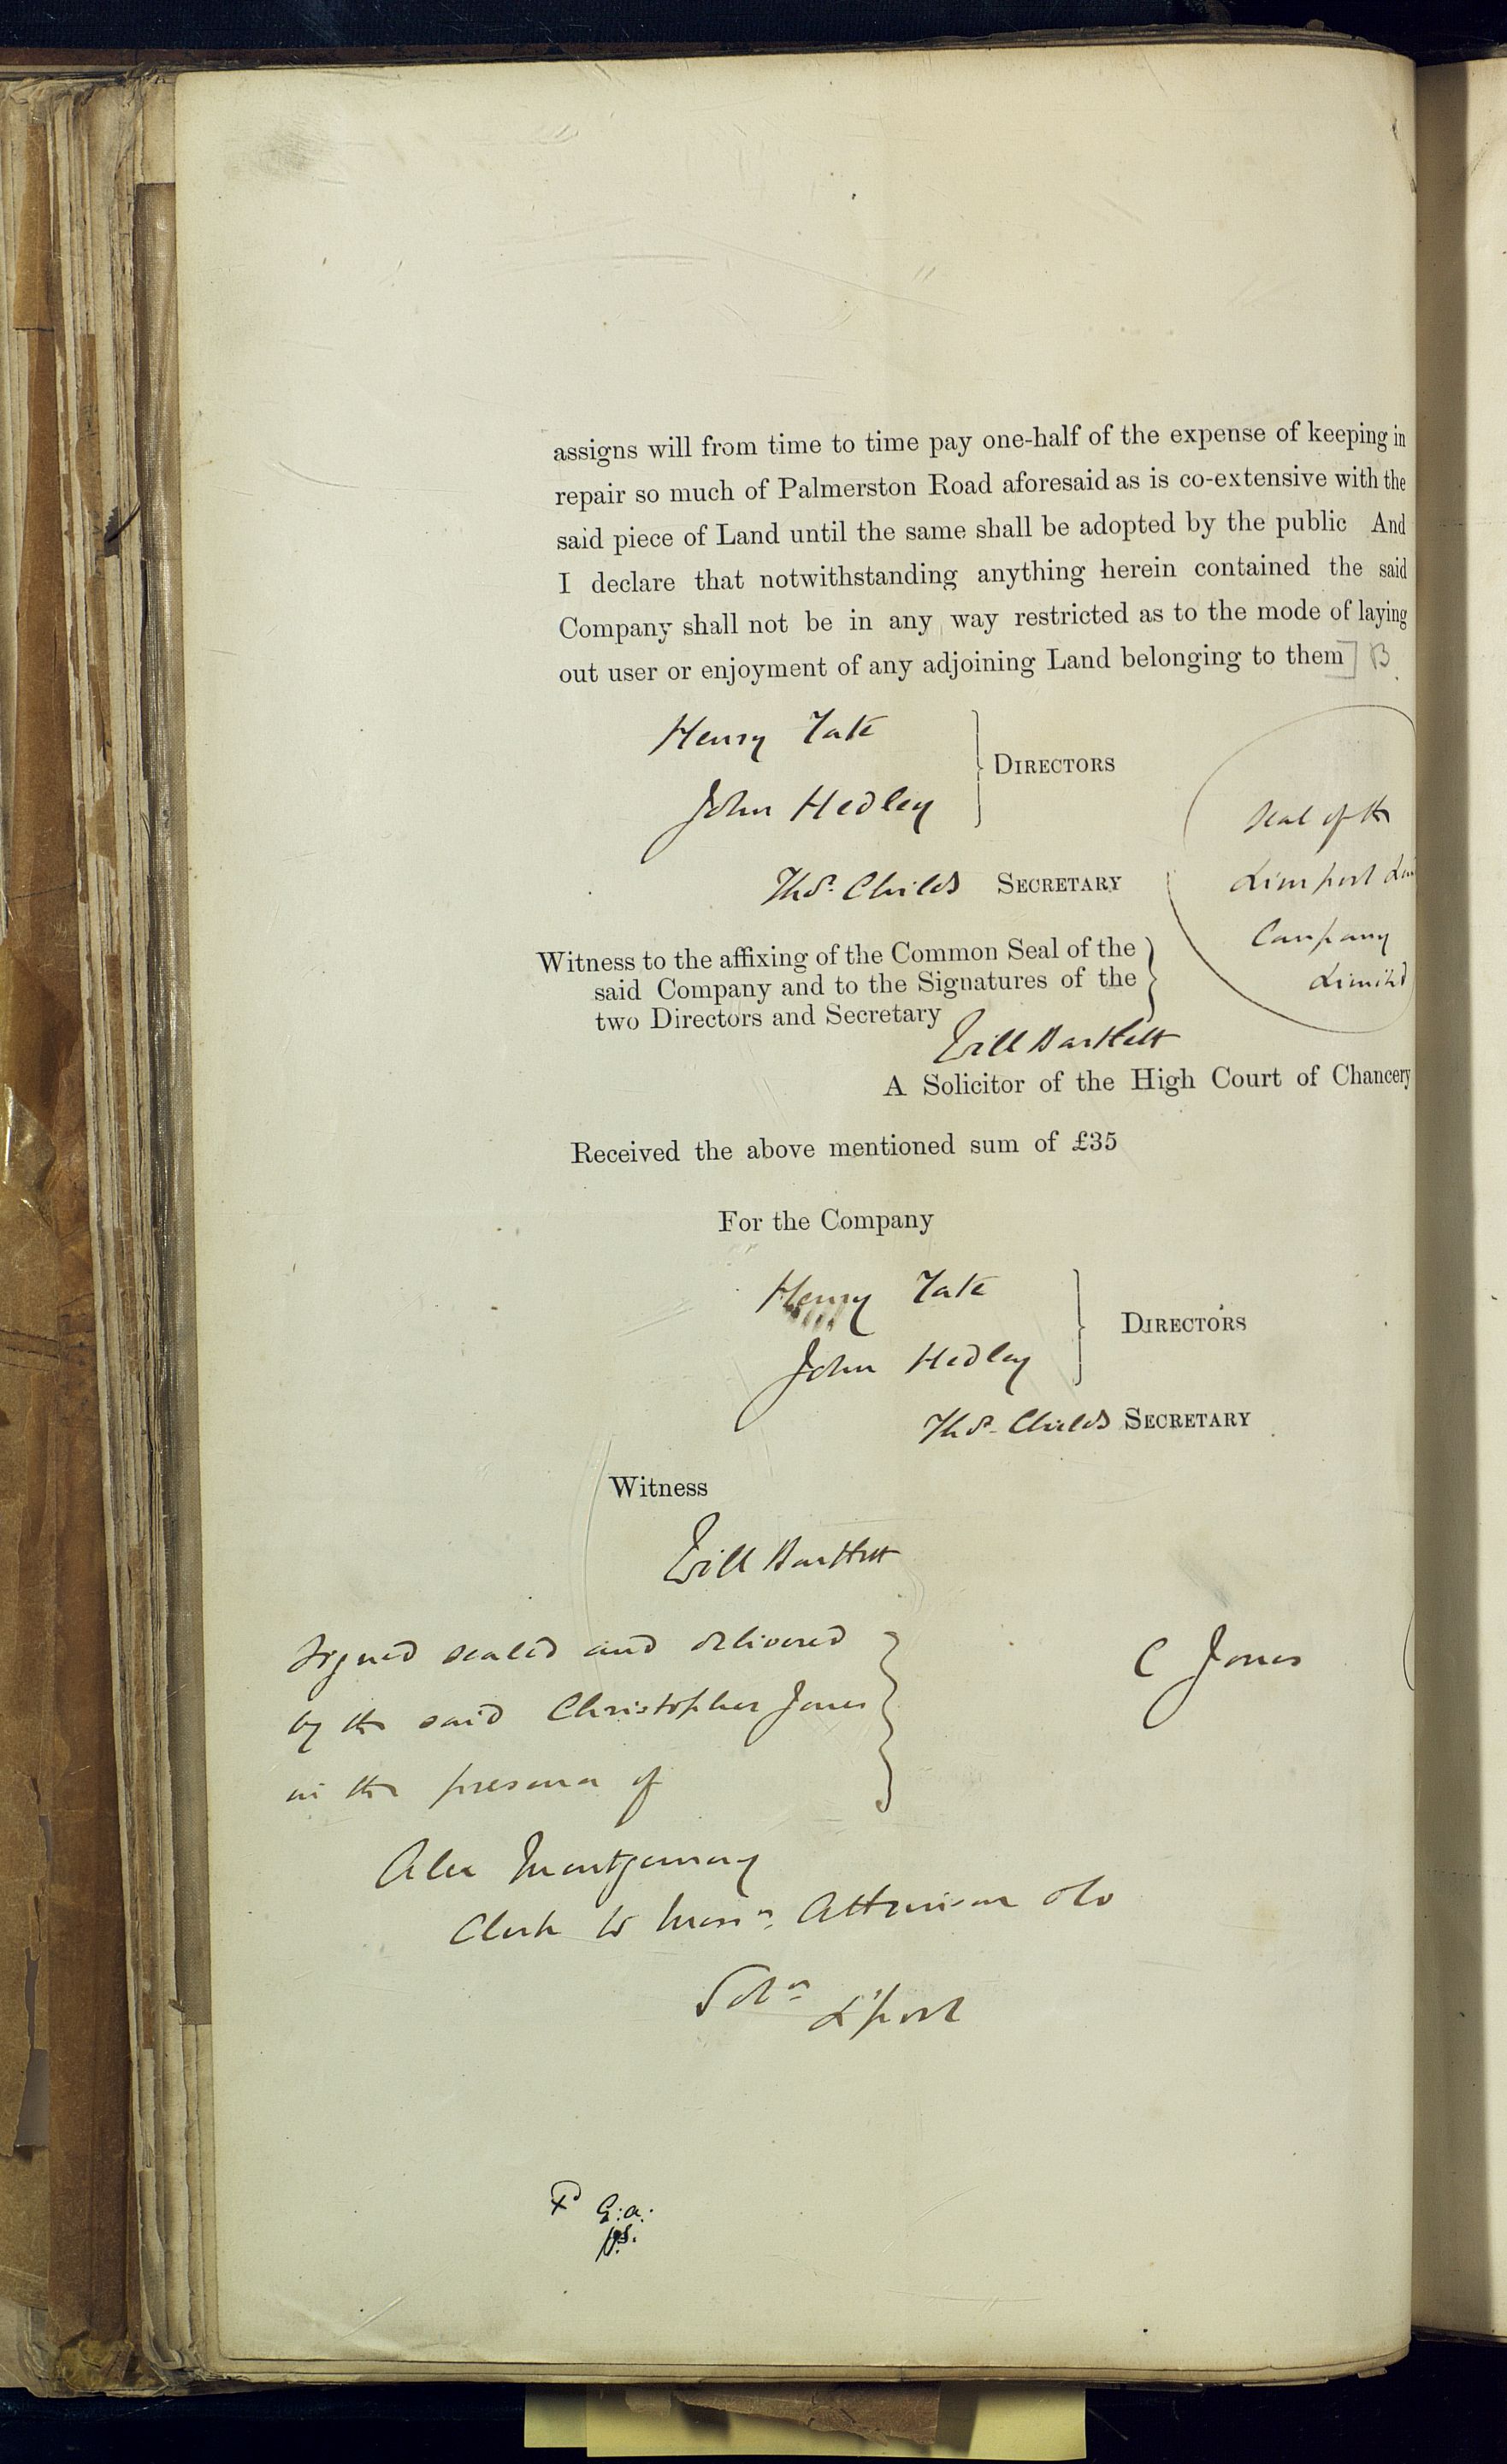 assigns will from time to time pay one-half of the expense of keeping in
repair so much of Palmerston Road aforesaid as is co-extensive with the
said piece of Land until the same shall be adopted by the public And
I declare that notwithstanding anything herein contained the said
Company shall not be in any way restricted as to the mode of laying
out user or enjoyment of any adjoining Land belonging to them] B
Henry Tate
DIRECTORS
John Hedley
Thos. Childs SECRETARY
Seal of the
Limpool
Company
Limited
Witness to the affixing of the Common Seal of the
said Company and to the Signatures of the
two Directors and Secretary
Will Bartlett
A Solicitor of the High Court of Chancery
Received the above mentioned sum of £35
For the Company
Henry Tate
DIRECTORS
John Hedley
Thos. Childs SECRETARY
Witness
Will Bartlett
Signed sealed and delivered
by the said Christopher Jones
in the presence of
C Jones
Alex Montgomery
Clerk to Messrs. Atkinson &Co
Solrs L'pool